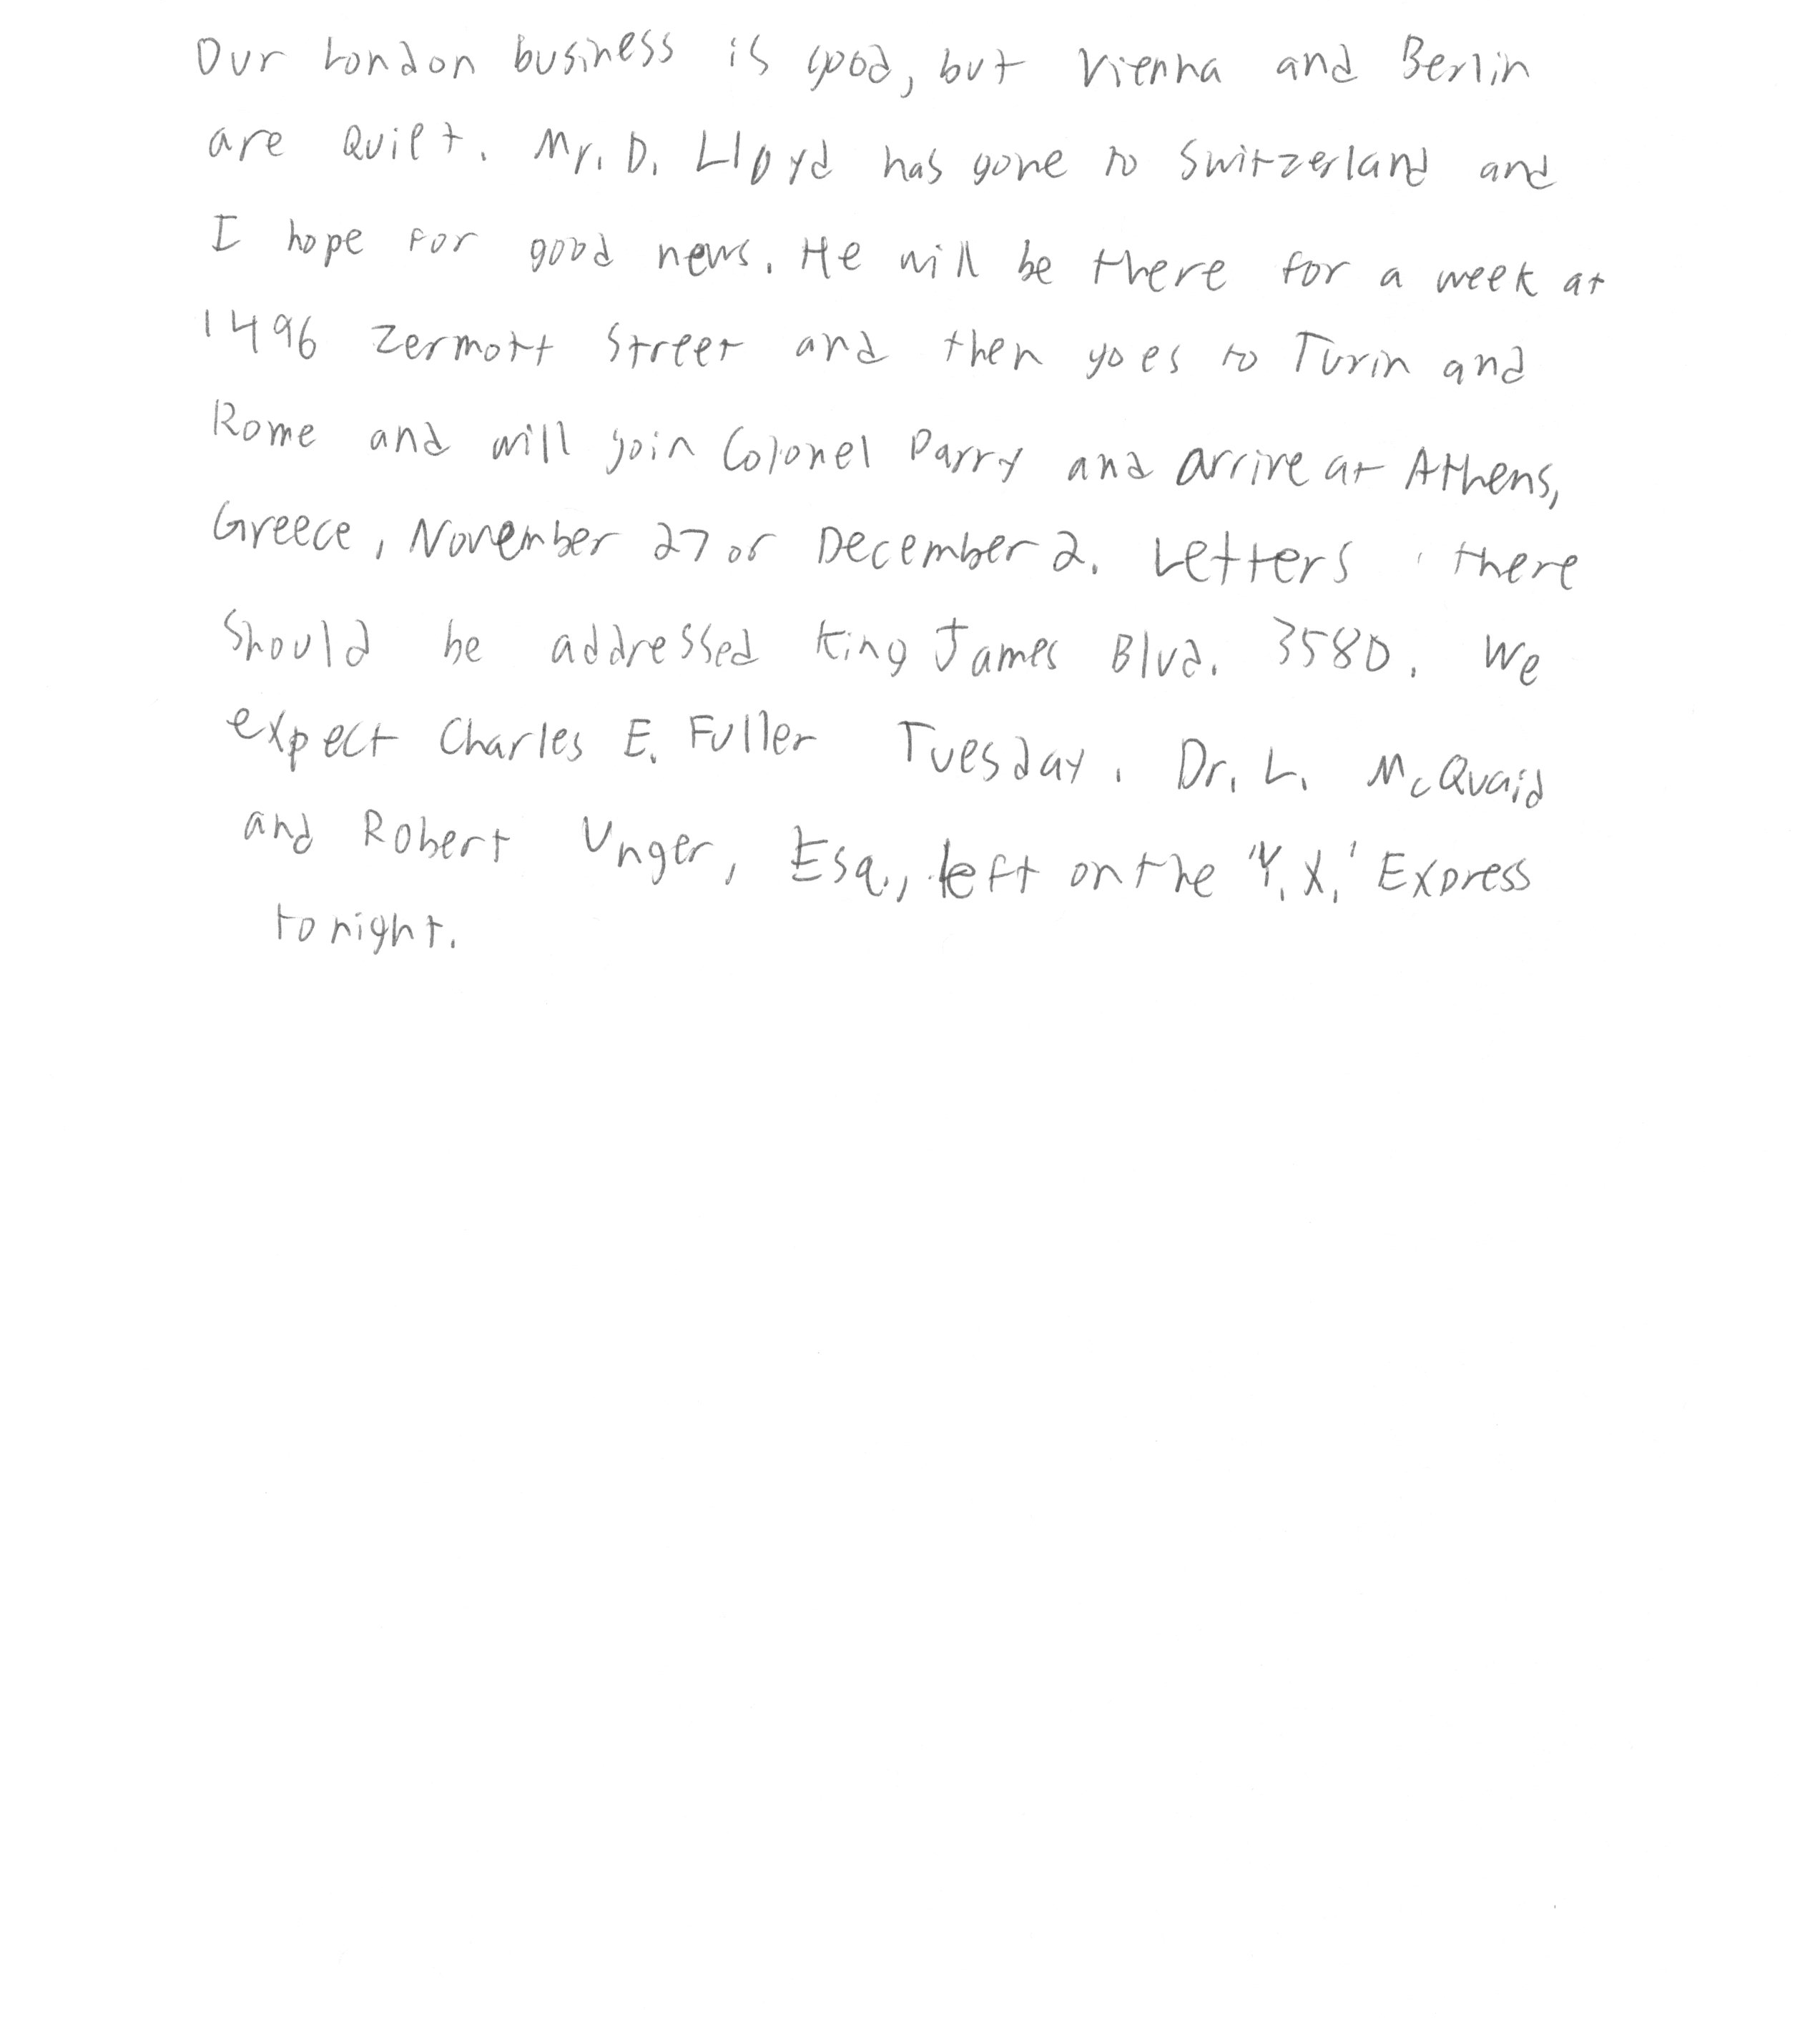 Our London business is good, but Vienna and Berlin
are Quiet. Mr. D. Lloyd has gone to Switzerland and
I hope for good news. He will be there for a week at
1496 Zermott Street and then goes to Turin and
Rome and will join Colonel Parry and arrive at Athens,
Greece, November 27 or December 2. Letters there
Should be addressed King James Blvd. 3580. We
expect Charles E. Fuller Tuesday. Dr. L. McQuaid
and Robert Unger, Esq., left on the 'Y.X.' Express
tonight.